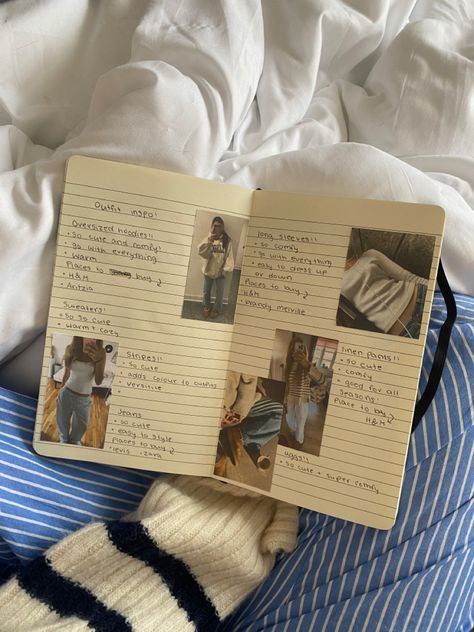 outfit inspo!
Oversized hoodies!!
• so cute and comfy!
• go with everything
• warm
Places to buy
• H&M
• Aritzia
Sweaters!
• so so cute
• warm + cozy
Stripes!!
• so cute
• adds colour to outfits
• versitive
Jeans
• so cute
• easy to style
Places to buy
• levis • zara
long sleeves!!
• so comfy
• go with everything
• easy to dress up
or down
Places to buy
• H&M
• Brandy melville
linen pants!!
• so cute
• comfy
• good for all
seasons!
Place to buy
• H&M
uggs!!
• so cute + super comfy